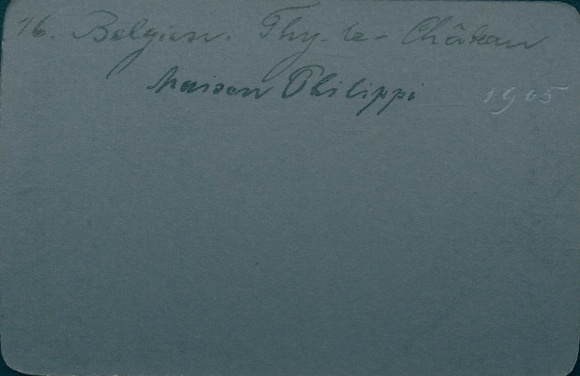 16. Belgien. Thy-le-Château
Maison Philippi 1905